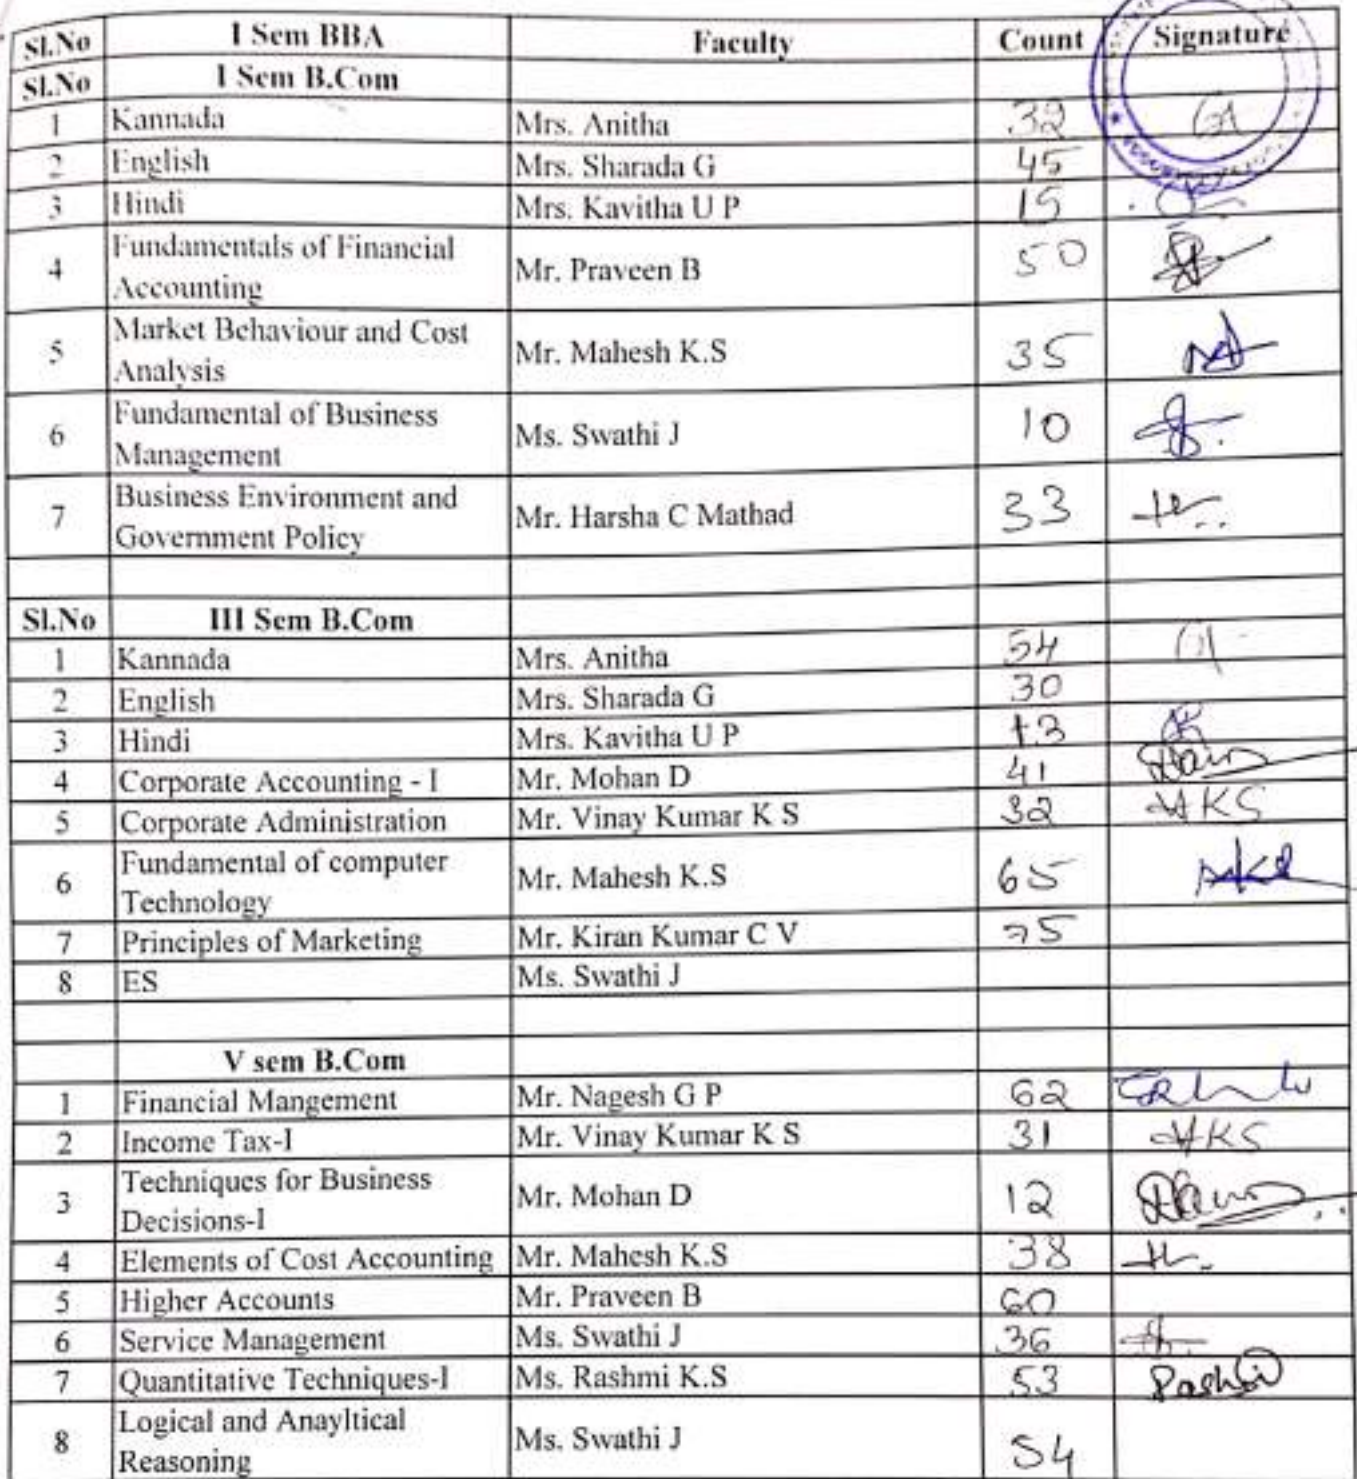 Sl.No I Sem BBA Faculty Count Signature
Sl.No I Sem B.Com
1 Kannada Mrs. Anitha 32
2 English Mrs. Sharada G 45
3 Hindi Mrs. Kavitha U P 15
4 Fundamentals of Financial Mr. Praveen B 50
Accounting
5 Market Behaviour and Cost Mr. Mahesh K.S 35
Analysis
6 Fundamental of Business Ms. Swathi J 10
Management
7 Business Environment and Mr. Harsha C Mathad 33
Government Policy
Sl.No III Sem B.Com
1 Kannada Mrs. Anitha 54
2 English Mrs. Sharada G 30
3 Hindi Mrs. Kavitha U P
4 Corporate Accounting - I Mr. Mohan D 41
5 Corporate Administration Mr. Vinay Kumar K S 32
6 Fundamental of computer Mr. Mahesh K.S 65
Technology
7 Principles of Marketing Mr. Kiran Kumar C V
8 ES Ms. Swathi J
V sem B.Com
1 Financial Mangement Mr. Nagesh G P 62
2 Income Tax-I Mr. Vinay Kumar K S 31
3 Techniques for Business Mr. Mohan D 12
Decisions-I
4 Elements of Cost Accounting Mr. Mahesh K.S 38
5 Higher Accounts Mr. Praveen B 60
6 Service Management Ms. Swathi J 36
7 Quantitative Techniques-I Ms. Rashmi K.S 53
8 Logical and Anayltical Ms. Swathi J 54
Reasoning